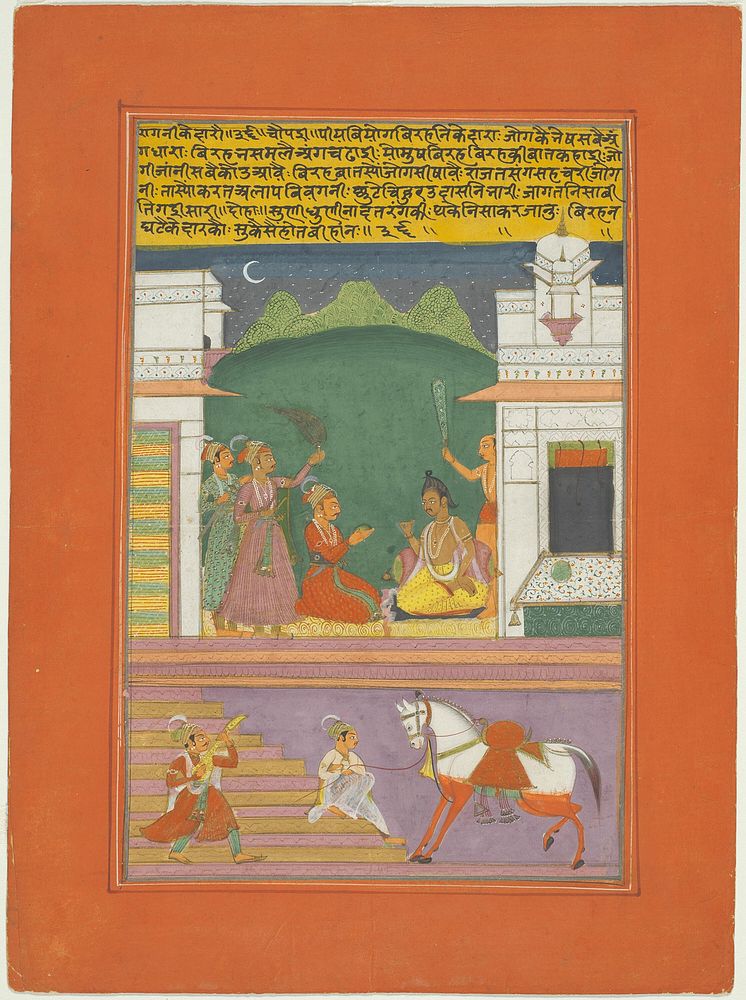 रागनीकेदारो॥३६॥चौपइ॥पीयबियोगबिरहनिकेदाराः जोगकैनेषसबैअं
गधाराः बिरहनसमलैअंगचढाइः मोमुषबिरहबिरहकीबातकहाइः जो
गीजांनीसबैकोउआवैः बिरहब्रातस्योजोगसीषावैः राजतसगसहचरीजोग
नीः तास्योकरतअलापबिवगनीः छुटेचिकुरउदासनिनारीः जागतनिसाबी
तिगइसारी॥दोहा॥ धुलीनाइतरगकीः थकेनिसाकरजानुः बिरहन
घटकेदारकौः सुकैसैहोतबीहांनः॥३६॥ ॥ ॥